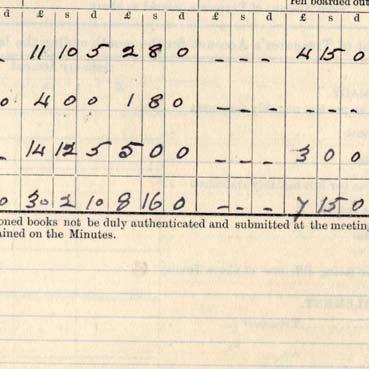 ren boarded out
d £ s d £ s d £ s d £ s d
- 11 10 5 2 8 0 - - - 4 15 0
0 4 0 0 1 8 0 - - - - - -
- 14 12 5 5 0 0 - - - 3 0 0
0 30 2 10 8 16 0 - - - 7 15 0
oned books not be duly authenticated and submitted at the meeting
ained on the Minutes.